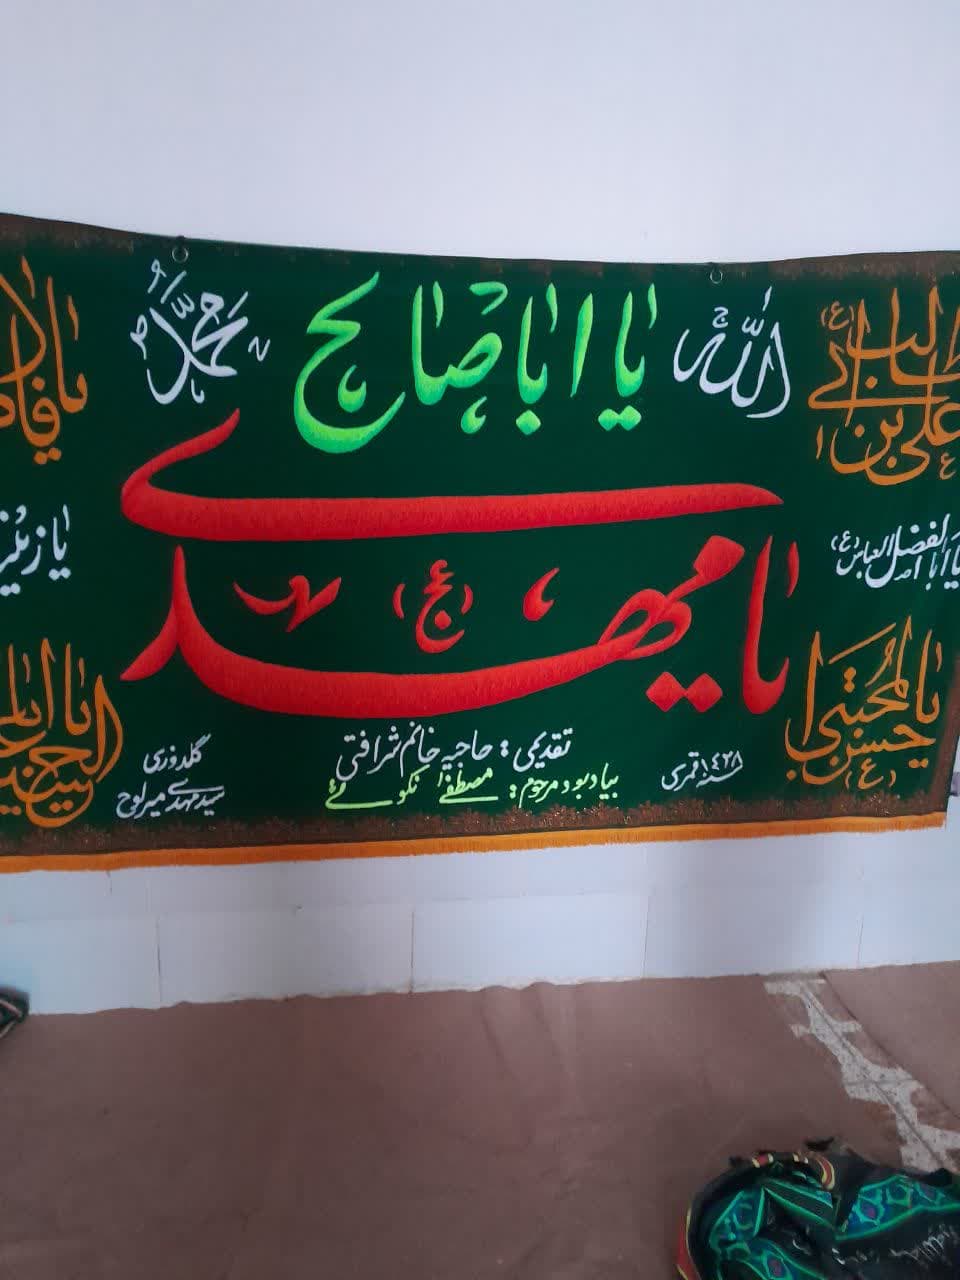 الله ج
یا ابا صالح
محمد
یا مهدی (عج)
علی بن ابی طالب (ع)
یا ابا الفضل العباس (ع)
یا حسن المجتبی (ع)
تقدیمی : حاجیه خانم شرافتی
بیادبود مرحوم : مصطفی نکوئی
سنه ۱۴۲۸ قمری
گلدوزی
سیدمهدی میرلوح